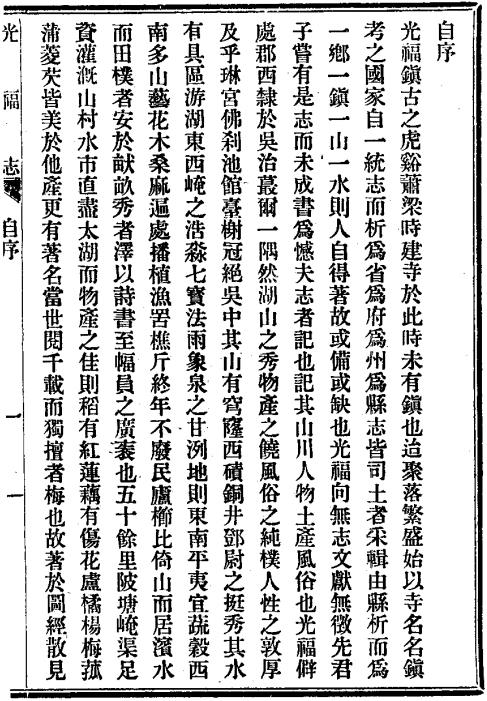 自序
光福鎭古之虎谿蕭梁時建寺於此時未有鎭也迨聚落繁盛始以寺名名鎭
考之國家自一統志而析爲省爲府爲州爲縣志皆司土者采輯由縣析而爲
一鄉一鎭一山一水則人自得著故或備或缺也光福向無志文獻無徵先君
子嘗有是志而未成書爲憾夫志者記也記其山川人物土產風俗也光福僻
處郡西隸於吳治蕞爾一隅然湖山之秀物產之饒風俗之純樸人性之敦厚
及乎琳宮佛刹池館臺榭冠絕吳中其山有穹窿西磧銅井鄧尉之挺秀其水
有具區游湖東西崦之浩淼七寶法雨象泉之甘洌地則東南平夷宜蔬穀西
南多山藝花木桑麻遍處播植漁罟樵斤終年不廢民廬櫛比倚山而居濱水
而田樸者安於畎畝秀者澤以詩書至幅員之廣袤也五十餘里陂塘崦渠足
資灌漑山村水市直盡太湖而物產之佳則稻有紅蓮藕有傷花盧橘楊梅菰
蒲菱芡皆美於他產更有著名當世閱千載而獨擅者梅也故著於圖經散見
光福志
自序
一
一